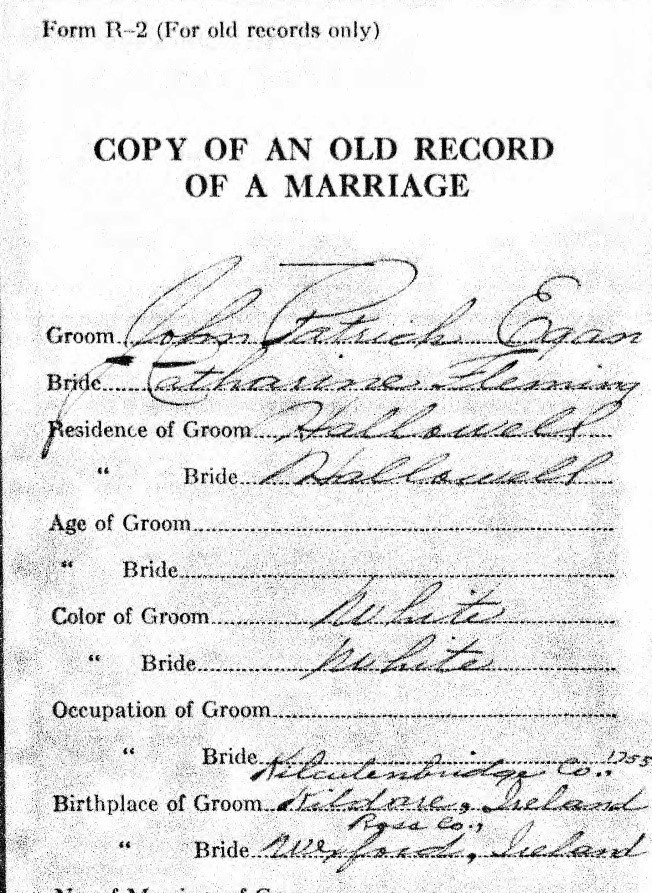 Form R-2 (For old records only)
COPY OF AN OLD RECORD
OF A MARRIAGE
Groom John Patrick Egan
Bride Catharine Fleming
Residence of Groom Hallowell
" Bride Hallowell
Age of Groom
" Bride
Color of Groom White
" Bride White
Occupation of Groom
" Bride
Kilculenbridge Co., 1755
Birthplace of Groom Kildare, Ireland
Ross Co.,
" Bride Wexford, Ireland